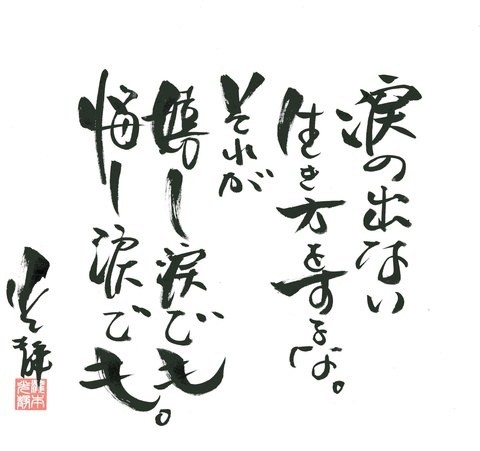 涙の出ない
生き方をするな。
それが
嬉し涙でも
悔し涙でも。
光龍